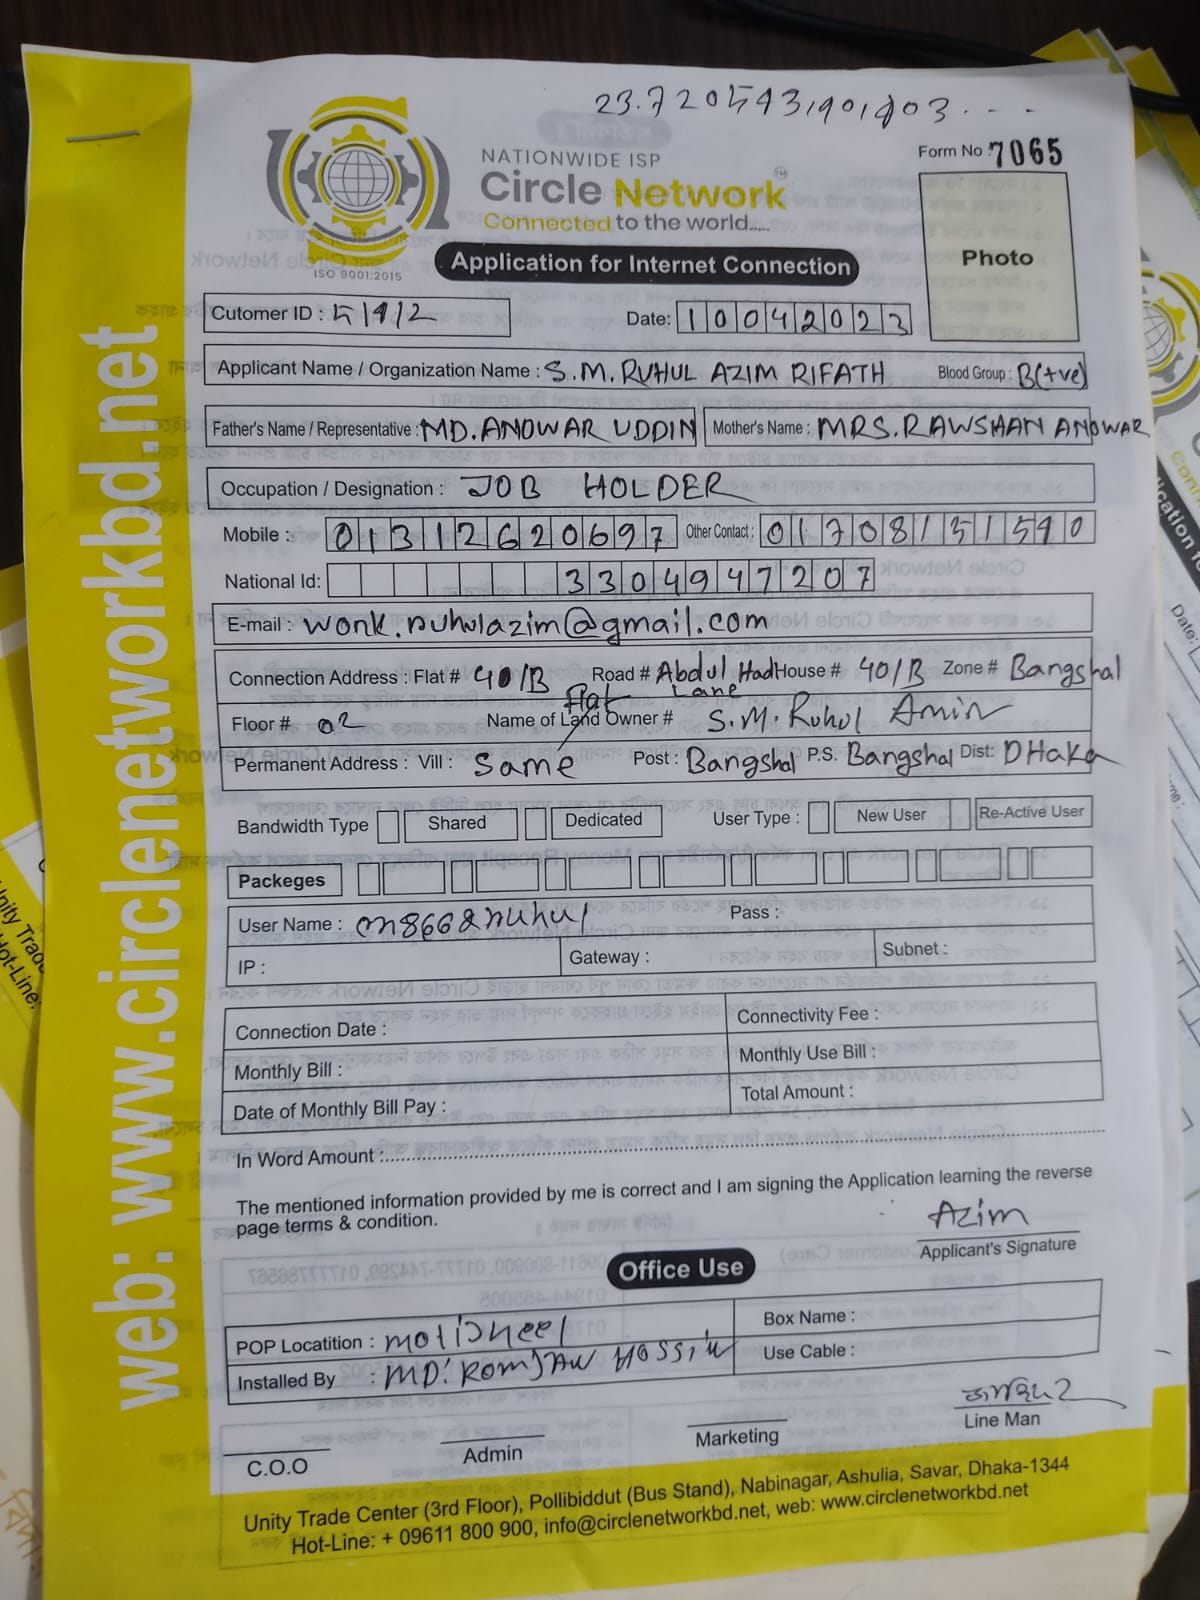 23.720543,90,403....
Form No : 7065
NATIONWIDE ISP
Circle Network TM
Connected to the world.....
ISO 9001:2015
Application for Internet Connection
Photo
Cutomer ID : 5112 Date: 10042023
Applicant Name / Organization Name : S.M. RUHUL AZIM RIFATH Blood Group : B(+ve)
Father's Name / Representative : MD. ANOWAR UDDIN Mother's Name : MRS. RAWSHAN ANOWAR
Occupation / Designation : JOB HOLDER
Mobile : 01312620697 Other Contact : 01708151590
National Id: 3304947207
E-mail : work.ruhulazim@gmail.com
Connection Address : Flat # 40/B Road # Abdul Had Lane House # 40/B Zone # Bangshal
Floor # 02 Name of Land Owner # flat S.M. Ruhul Amin
Permanent Address : Vill : Same Post : Bangshal P.S. Bangshal Dist: DHaka
Bandwidth Type Shared Dedicated User Type : New User Re-Active User
Packeges
User Name : Pass :
IP : Gateway : Subnet :
Connection Date : Connectivity Fee :
Monthly Bill : Monthly Use Bill :
Date of Monthly Bill Pay : Total Amount :
In Word Amount :
The mentioned information provided by me is correct and I am signing the Application learning the reverse
page terms & condition.
Azim
Applicant's Signature
Office Use
POP Locatition : motijheel Box Name :
Installed By : MD. ROMJAN HOSSIN Use Cable :
C.O.O Admin Marketing Line Man
Unity Trade Center (3rd Floor), Pollibiddut (Bus Stand), Nabinagar, Ashulia, Savar, Dhaka-1344
Hot-Line: + 09611 800 900, info@circlenetworkbd.net, web: www.circlenetworkbd.net
web: www.circlenetworkbd.net